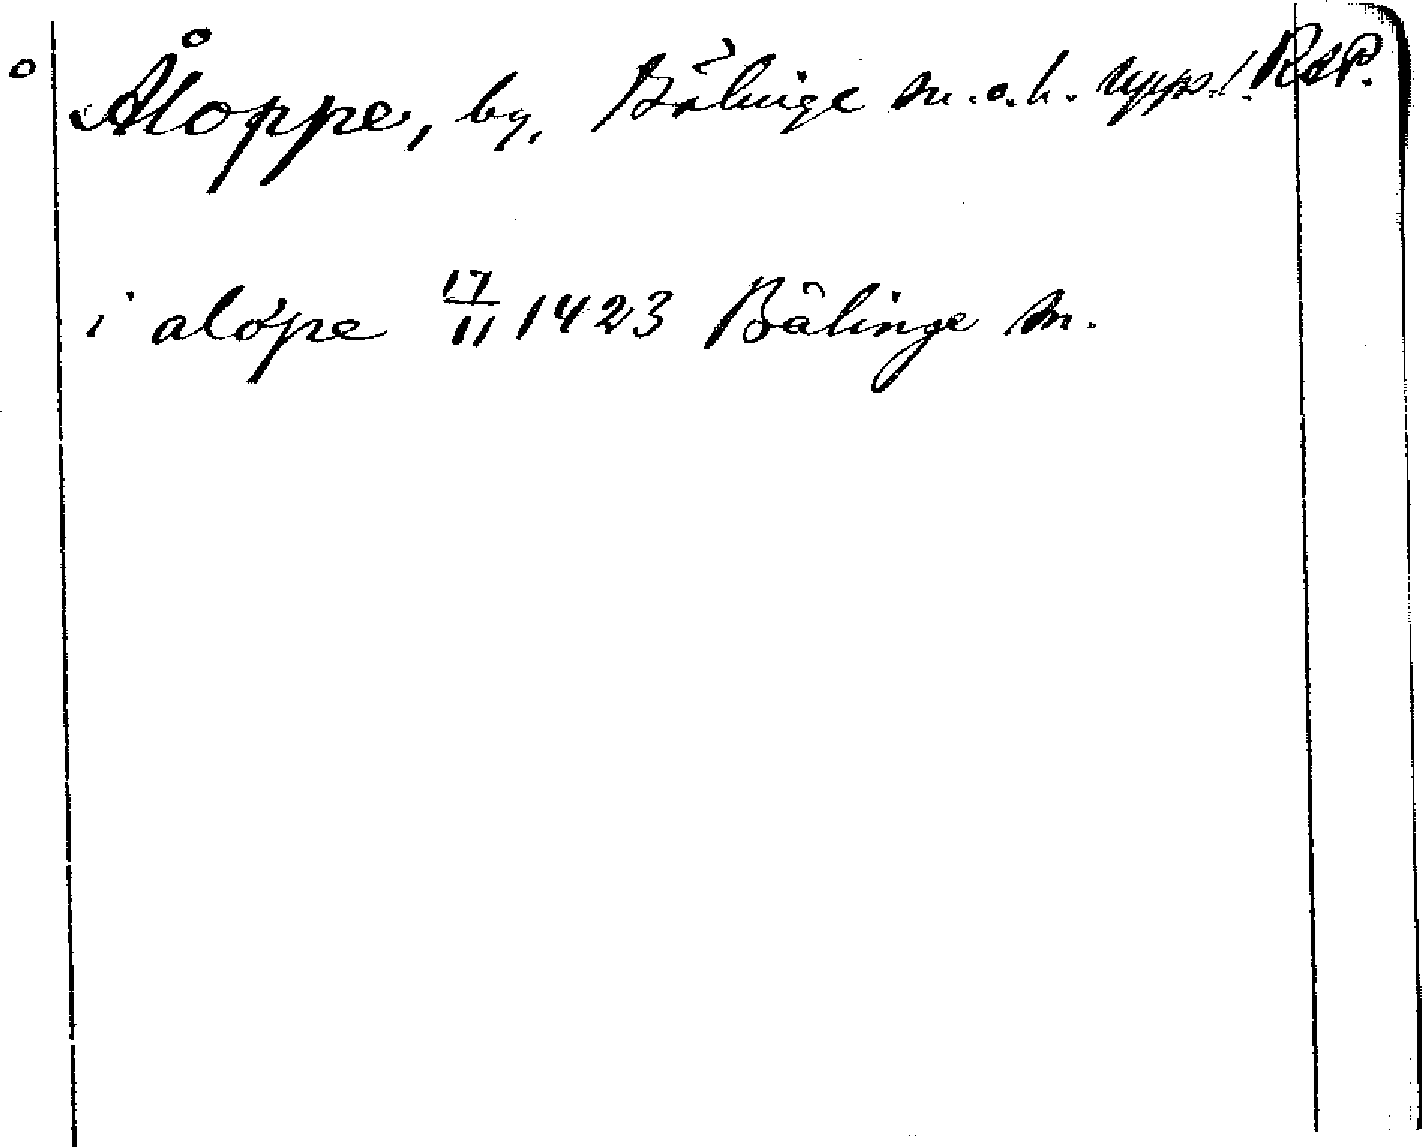 Åloppe, by, Bälinge sn. o. h. Uppl. RAP.
i alöpe 17/11 1423 Bälinge sn.